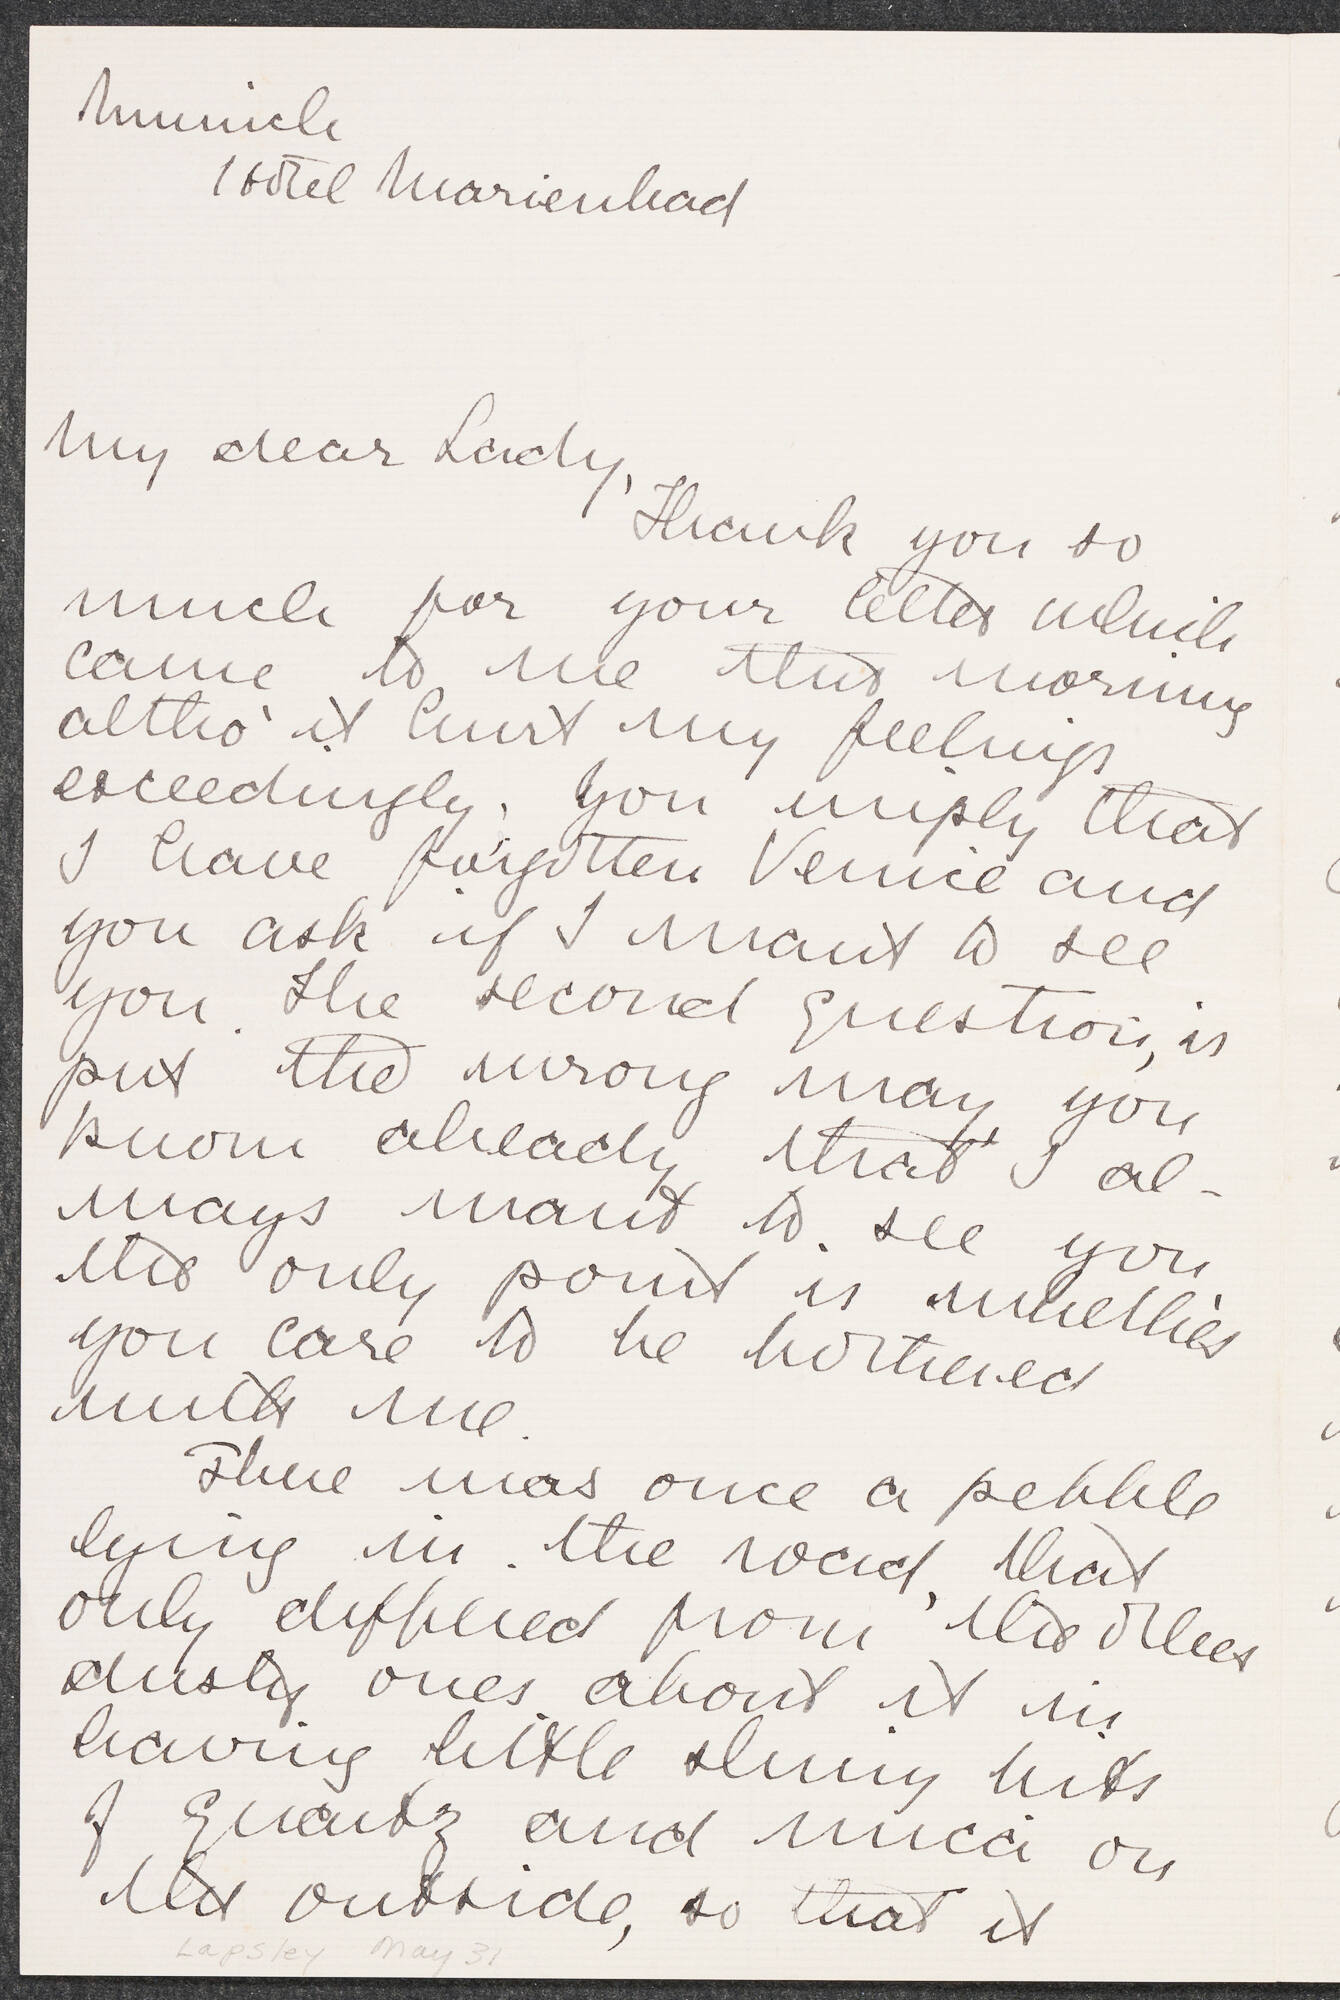 Munich
Hotel Marienbad
My dear Lady,
Thank you so
much for your letter which
came to me this morning
altho' it hurt my feelings
exceedingly. You imply that
I have forgotten Venice and
you ask if I want to see
you. The second question, is
put the wrong way, you
know already that I al-
ways want to see you
the only point is whether
you care to be bothered
with me.
There was once a pebble
lying in the road, that
only differed from the other
dusty ones about it in
having little shiny bits
of quartz and mica on
the outside, so that it
Lapsley May 31